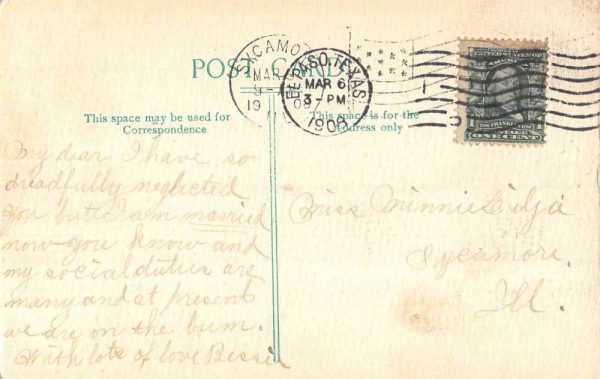 POST CARD
SYCAMO
MAR
9-A
19
EL PASO, TEXAS
MAR 6
3-PM
1908
This space may be used for
Correspondence
This space is for the
Address only
My dear I have so
dreadfully neglected
you but I am married
now you know and
my social duties are
many and at present
we are on the bum.
With lots of love Bessie
Miss Minnie
Sycamore,
Ill.
ONE CENT